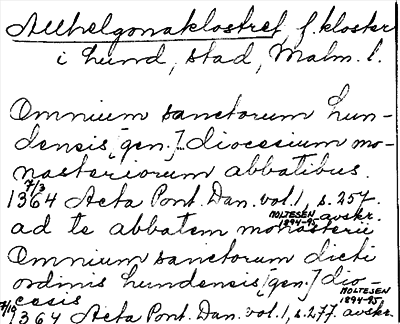 Allhelgonaklostret, f. kloster
i Lund, stad, Malm. l.
Omnium sanctorum Lun-
densis [gen.] diocesium mo-
nasteriorum abbatibus.
7/3
1364 Acta Pont. Dan. vol. 1, s. 257.
MOLTESEN 1894-95 avskr.
ad te abbatem monasterii
Omnium sanctorum dicti
ordinis Lundensis [gen.] dio-
cesis
MOLTESEN 1894-95
7/10
1364 Acta Pont. Dan. vol. 1, s. 277. avskr.